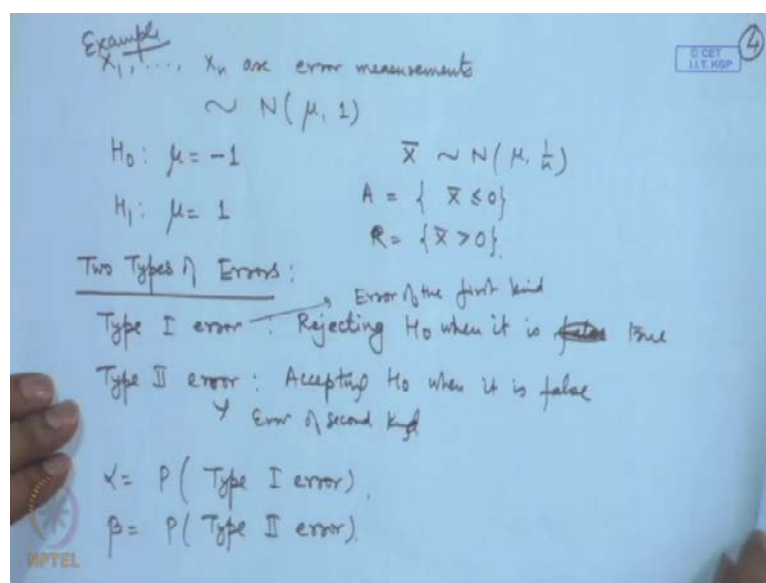 Example
X₁, ..., Xₙ are error measurements
~ N(μ, 1)
H₀: μ = -1
X̄ ~ N(μ, 1/n)
H₁: μ = 1
A = { X̄ ≤ 0}
R = {X̄ > 0}.
Two Types of Errors:
Error of the first kind
Type I error : Rejecting H₀ when it is true
Type II error : Accepting H₀ when it is false
Error of second kind
α = P( Type I error),
β = P( Type II error).
© CET
I.I.T. KGP
4
NPTEL